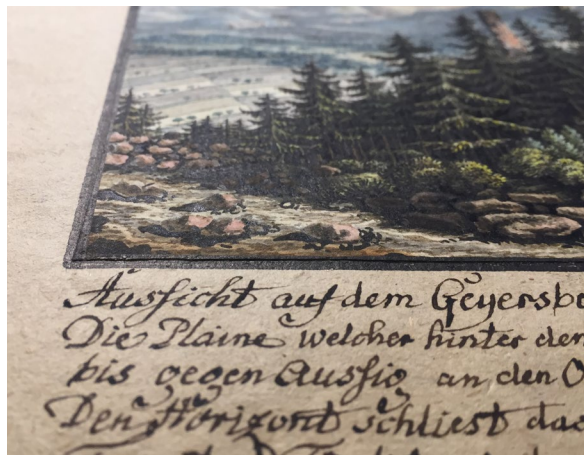 Aussicht auf dem Geyersbe
Die Plaine welcher hinter den
bis gegen Aussig an den O
Den Horizont schliest das